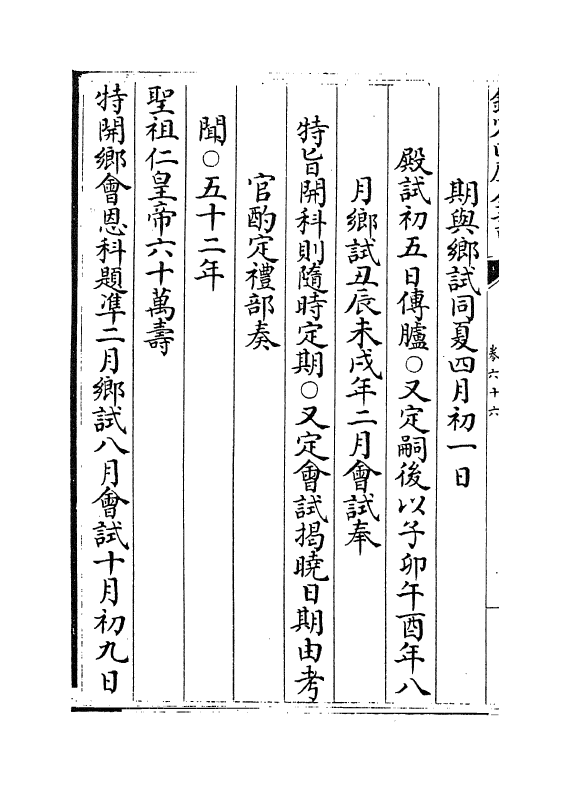 卷六十六
期與鄉試同夏四月初一日
殿試初五日傳臚○又定嗣後以子卯午酉年八
月鄉試丑辰未戌年二月會試奉
特旨開科則隨時定期○又定會試揭曉日期由考
官酌定禮部奏
聞○五十二年
聖祖仁皇帝六十萬壽
特開鄉會恩科題準二月鄉試八月會試十月初九日